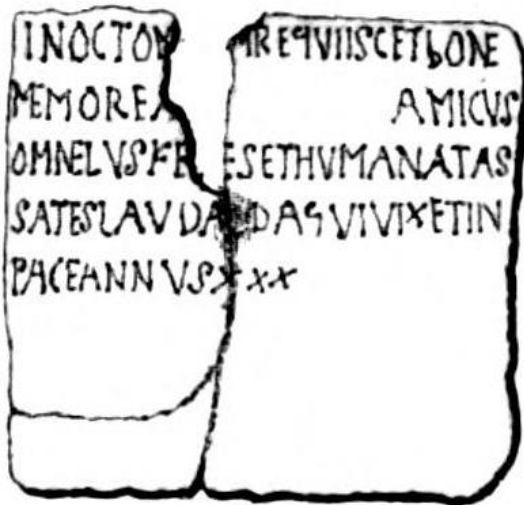 INOCTO REqVIISCETbONE
MEMOREA AMICVS
OMNELVSFE ESETHVMANATAS
SATESLAVDA DAqVIVIXETIN
PACEANNVSXXX